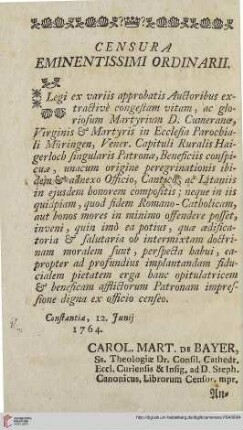 CENSURA
EMINENTISSIMI ORDINARII.
Legi ex variis approbatis Auctoribus ex-
tractivè congestam vitam, ac glo-
riosum Martyrium D. Cumeranæ,
Virginis & Martyris in Ecclesia Parochia-
li Müringen, Vener. Capituli Ruralis Hai-
gerloch singularis Patrona, Beneficiis conspi-
cuæ, unacum origine peregrinationis ibi-
dem & adnexo Officio, Canticô, ac Litaniis
in ejusdem honorem compositis; neque in iis
quidpiam, quod fidem Romano-Catholicam,
aut bonos mores in minimo offendere posset,
inveni, quin imò ea potius, quæ ædifica-
toria & salutaria ob intermixtam doctri-
nam moralem sunt, perspecta habui, ea-
propter ad profundius implantandam fidu-
cialem pietatem erga hanc opitulatricem
& beneficam afflictorum Patronam impres-
sione digna ex officio censeo.
Constantiæ, 12. Junij
1764.
CAROL. MART. DE BAYER,
Ss. Theologiæ Dr. Consil. Cathedr.
Eccl. Curiensis & Insig. ad D. Steph.
Canonicus, Librorum Censor, mpr.